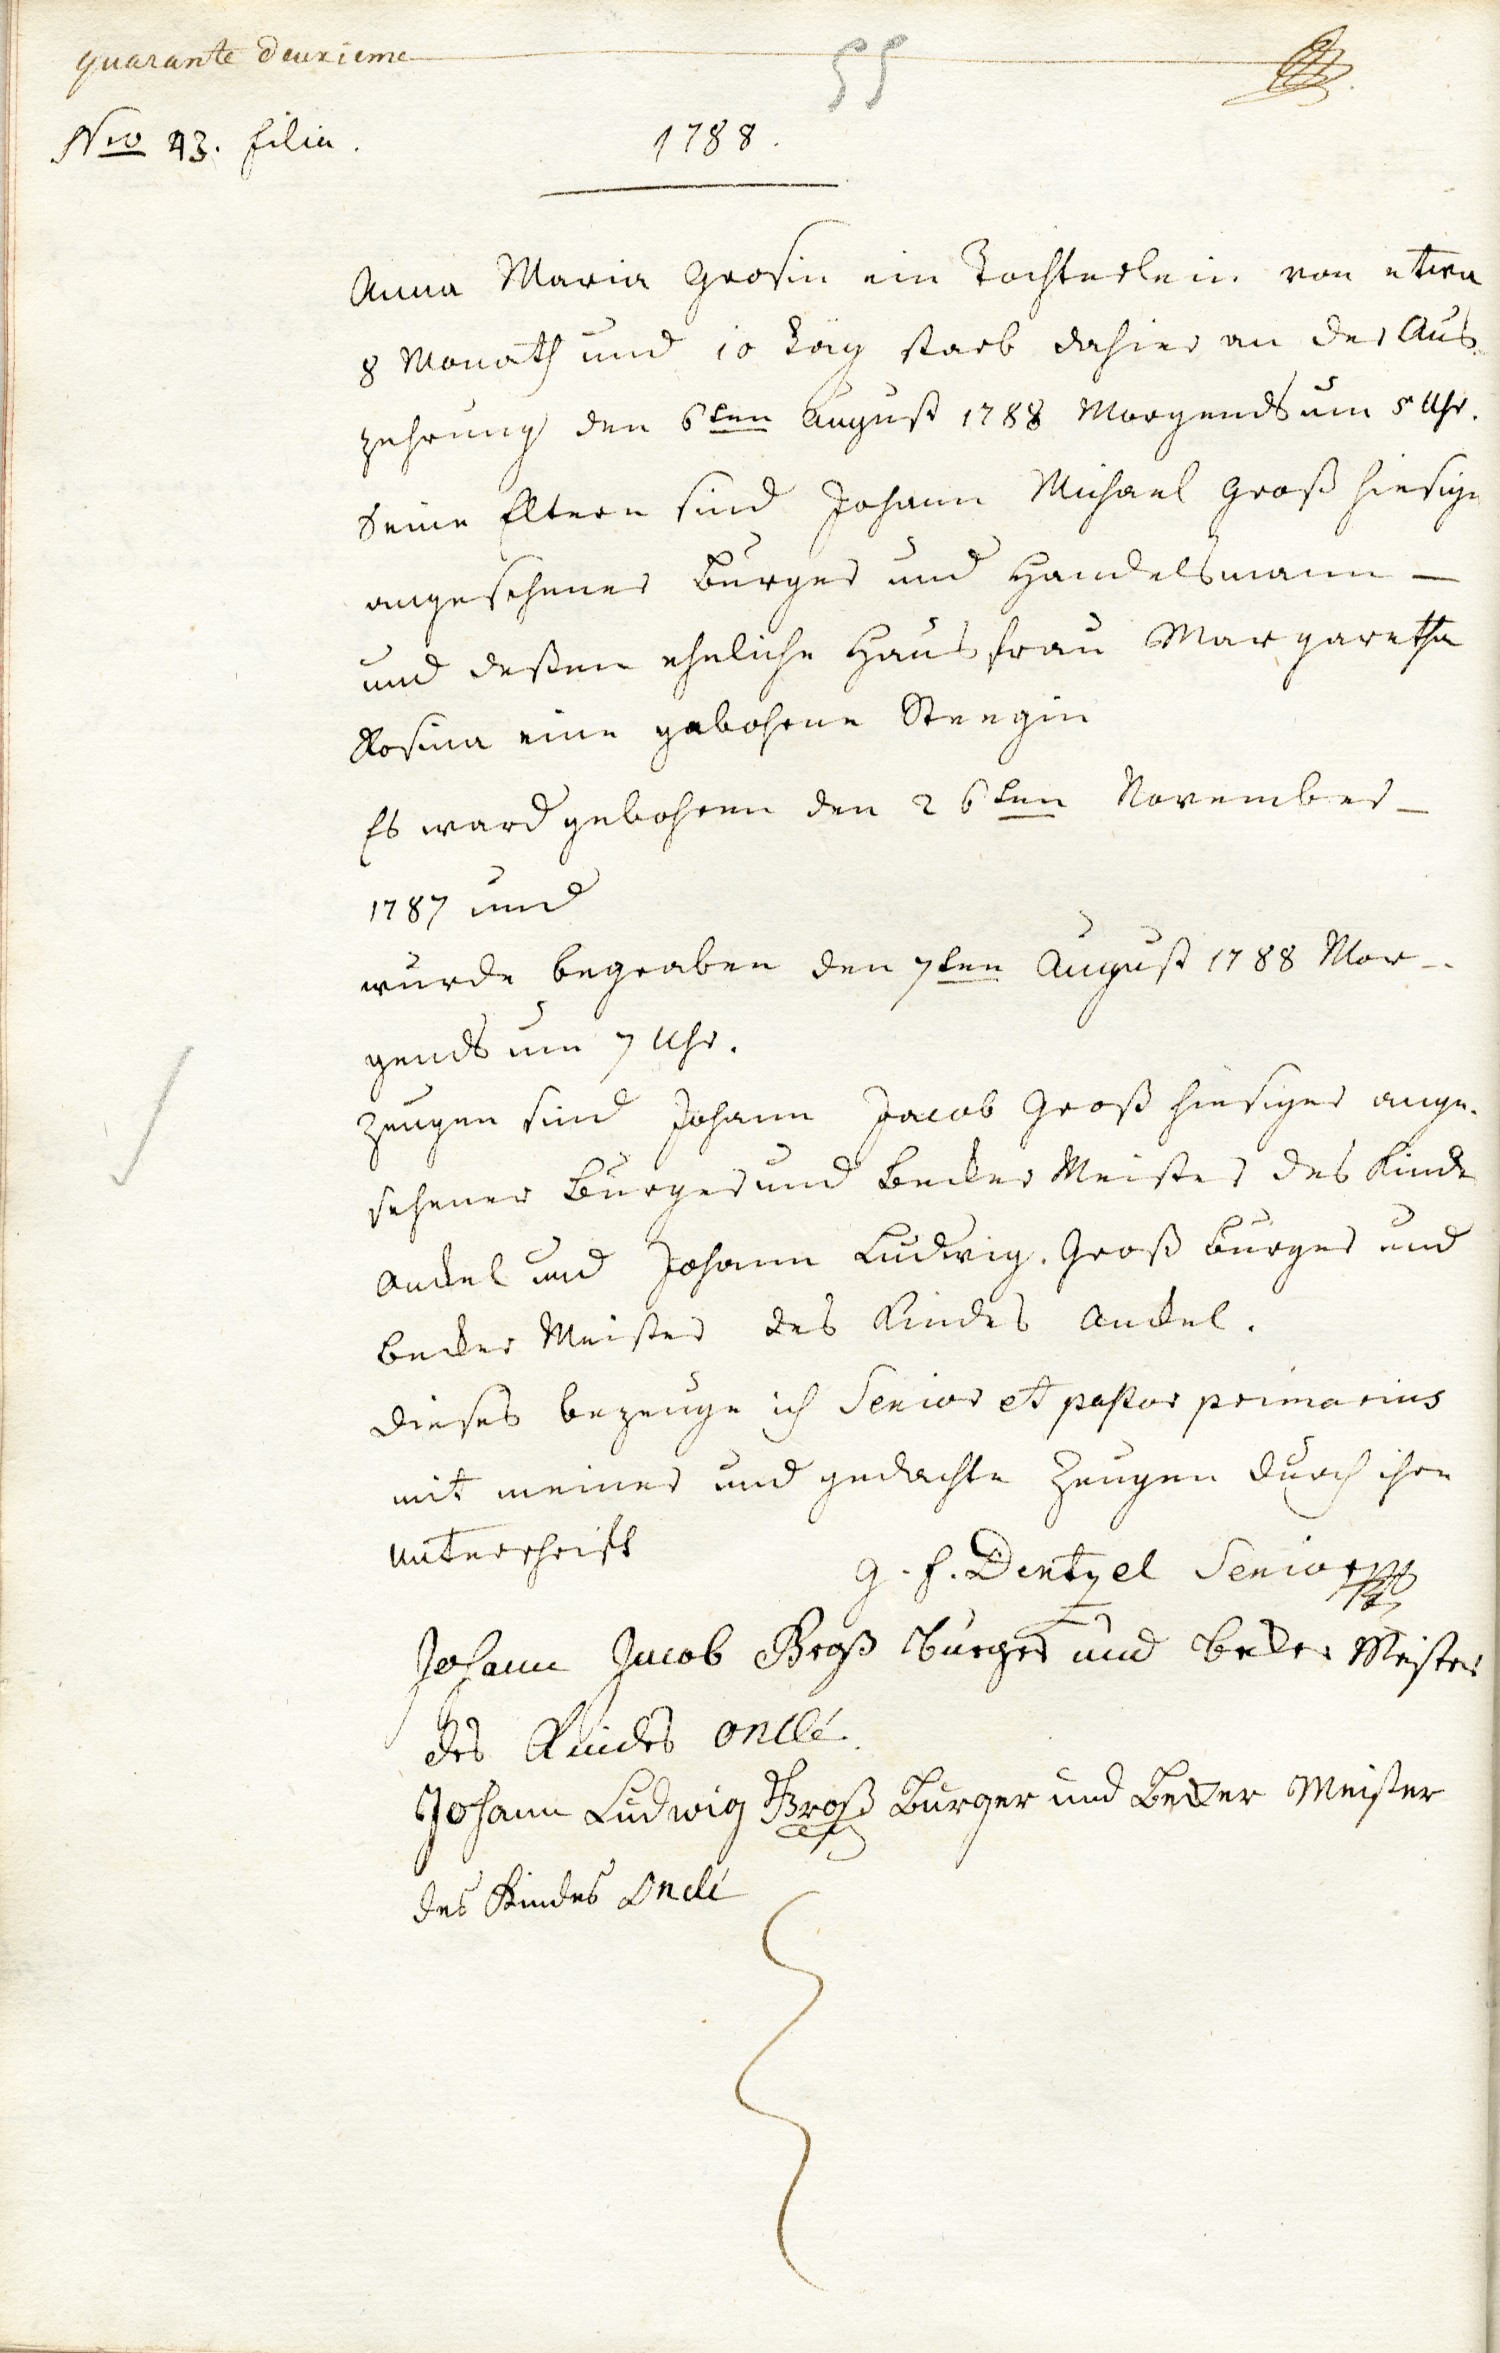 quarante deuxieme
55
Nro 43. filia.
1788.
Anna Maria Grosin ein Töchterlein von etwa
8 Monath und 10 Täg starb dahier an der Aus-
zehrung den 6ten August 1788 Morgends um 5 Uhr.
Seine Eltern sind Johann Michael Groß hiesige
angesehener Burger und Handelsmann –
und deßen eheliche Hausfrau Margaretha
Rosina eine gebohrne Steegin
Es ward gebohren den 26ten November –
1787 und
wurde begraben den 7ten August 1788 Mor-
gends um 7 Uhr.
Zeugen sind Johann Jacob Groß hiesiger ange-
sehener Burger und Becker Meister des Kinde
Onckel und Johann Ludwig Groß Burger und
Becker Meister des Kindes Onckel.
Dieses bezeuge ich Senior et pastor primarius
mit meiner und gedachte Zeugen durch ihre
Unterschrift
G. F. Dentzel Senior
Johann Jacob Groß Burger und Becker Meister
des Kindes onclé.
Johann Ludwig Groß Burger und Becker Meister
des Kindes Onclé